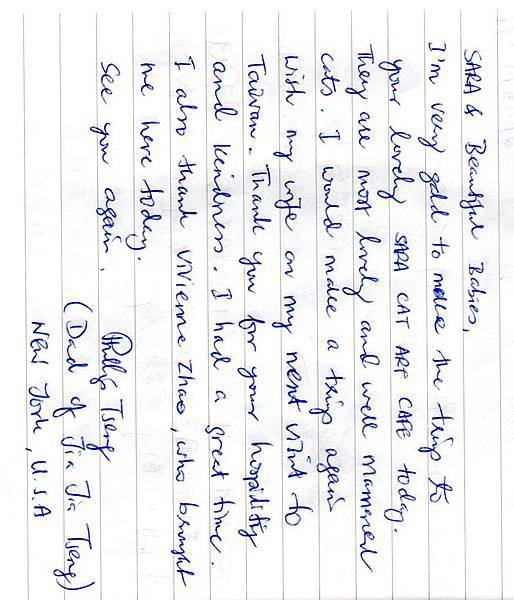 SARA & Beautiful Babies,
I'm very gald to make the trip to
your lovely SARA CAT ART CAFE today.
They are most lovely and well mannered
cats. I would make a trip again
wish my wife on my next visit to
Taiwan. Thank you for your hospitality
and kindness. I had a great time.
I also thank Vivienne Zhao, who brought
me here today.
See you again.
Tseng
(Dad of Jia Jia Tseng)
New York, U.S.A